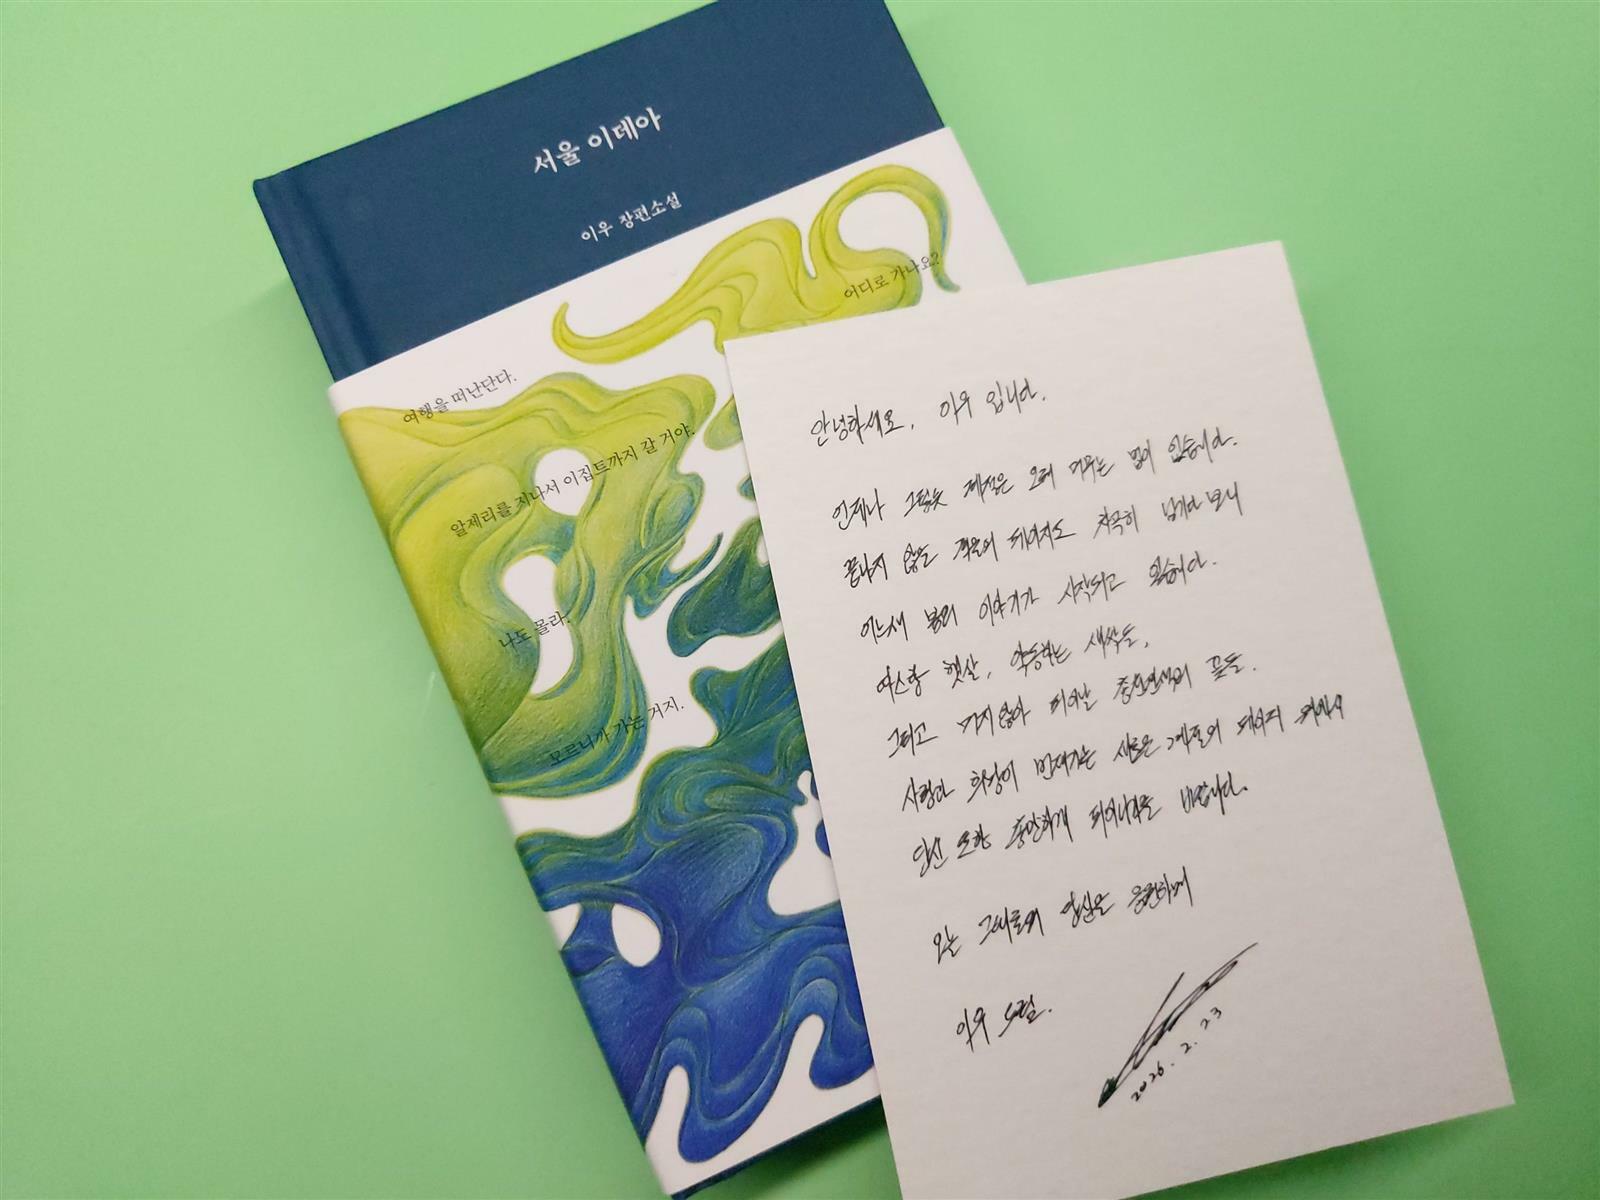 서울 이데아
이우 장편소설
어디로 가나요?
여행을 떠난단다.
알제리를 지나서 이집트까지 갈 거야.
나도 몰라.
모르니까 가는 거지.
안녕하세요, 이우 입니다.
언제나 그렇듯 계절은 오래 머무는 법이 없습니다.
끝나지 않을 겨울의 페이지도 차곡히 넘기다 보니
어느새 봄의 이야기가 시작되고 있습니다.
따스한 햇살, 약동하는 새싹들,
그리고 머지않아 피어날 총천연색의 꽃들.
사랑과 희망이 번져가는 새로운 계절의 페이지 위에서
당신 또한 충만하게 피어나기를 바랍니다.
오늘 그대로의 당신을 응원하며
이우 드림.
2026. 2. 23